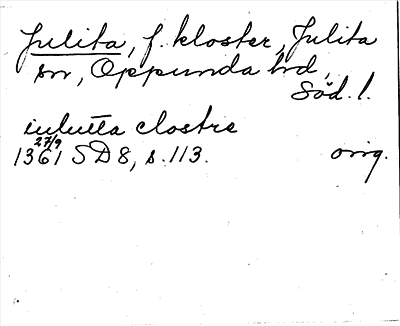 Julita, f. kloster, Julita
sn, Oppunda hd,
Söd. l.
iulutta clostre
27/9
1361 SD 8, s. 113. orig.